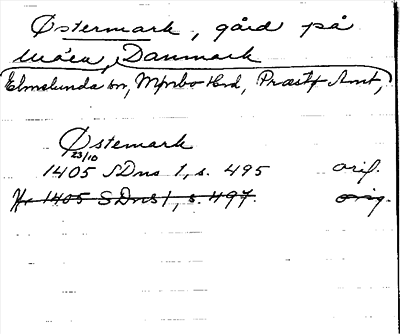 Østermark, gård på
Möen, Danmark
Elmelunda sn, Mönbo Hrd, Præstø Amt,
Østemark
23/10
1405 SDns 1, s. 495 orig.
Hr 1405 SDns 1, s. 497. orig.